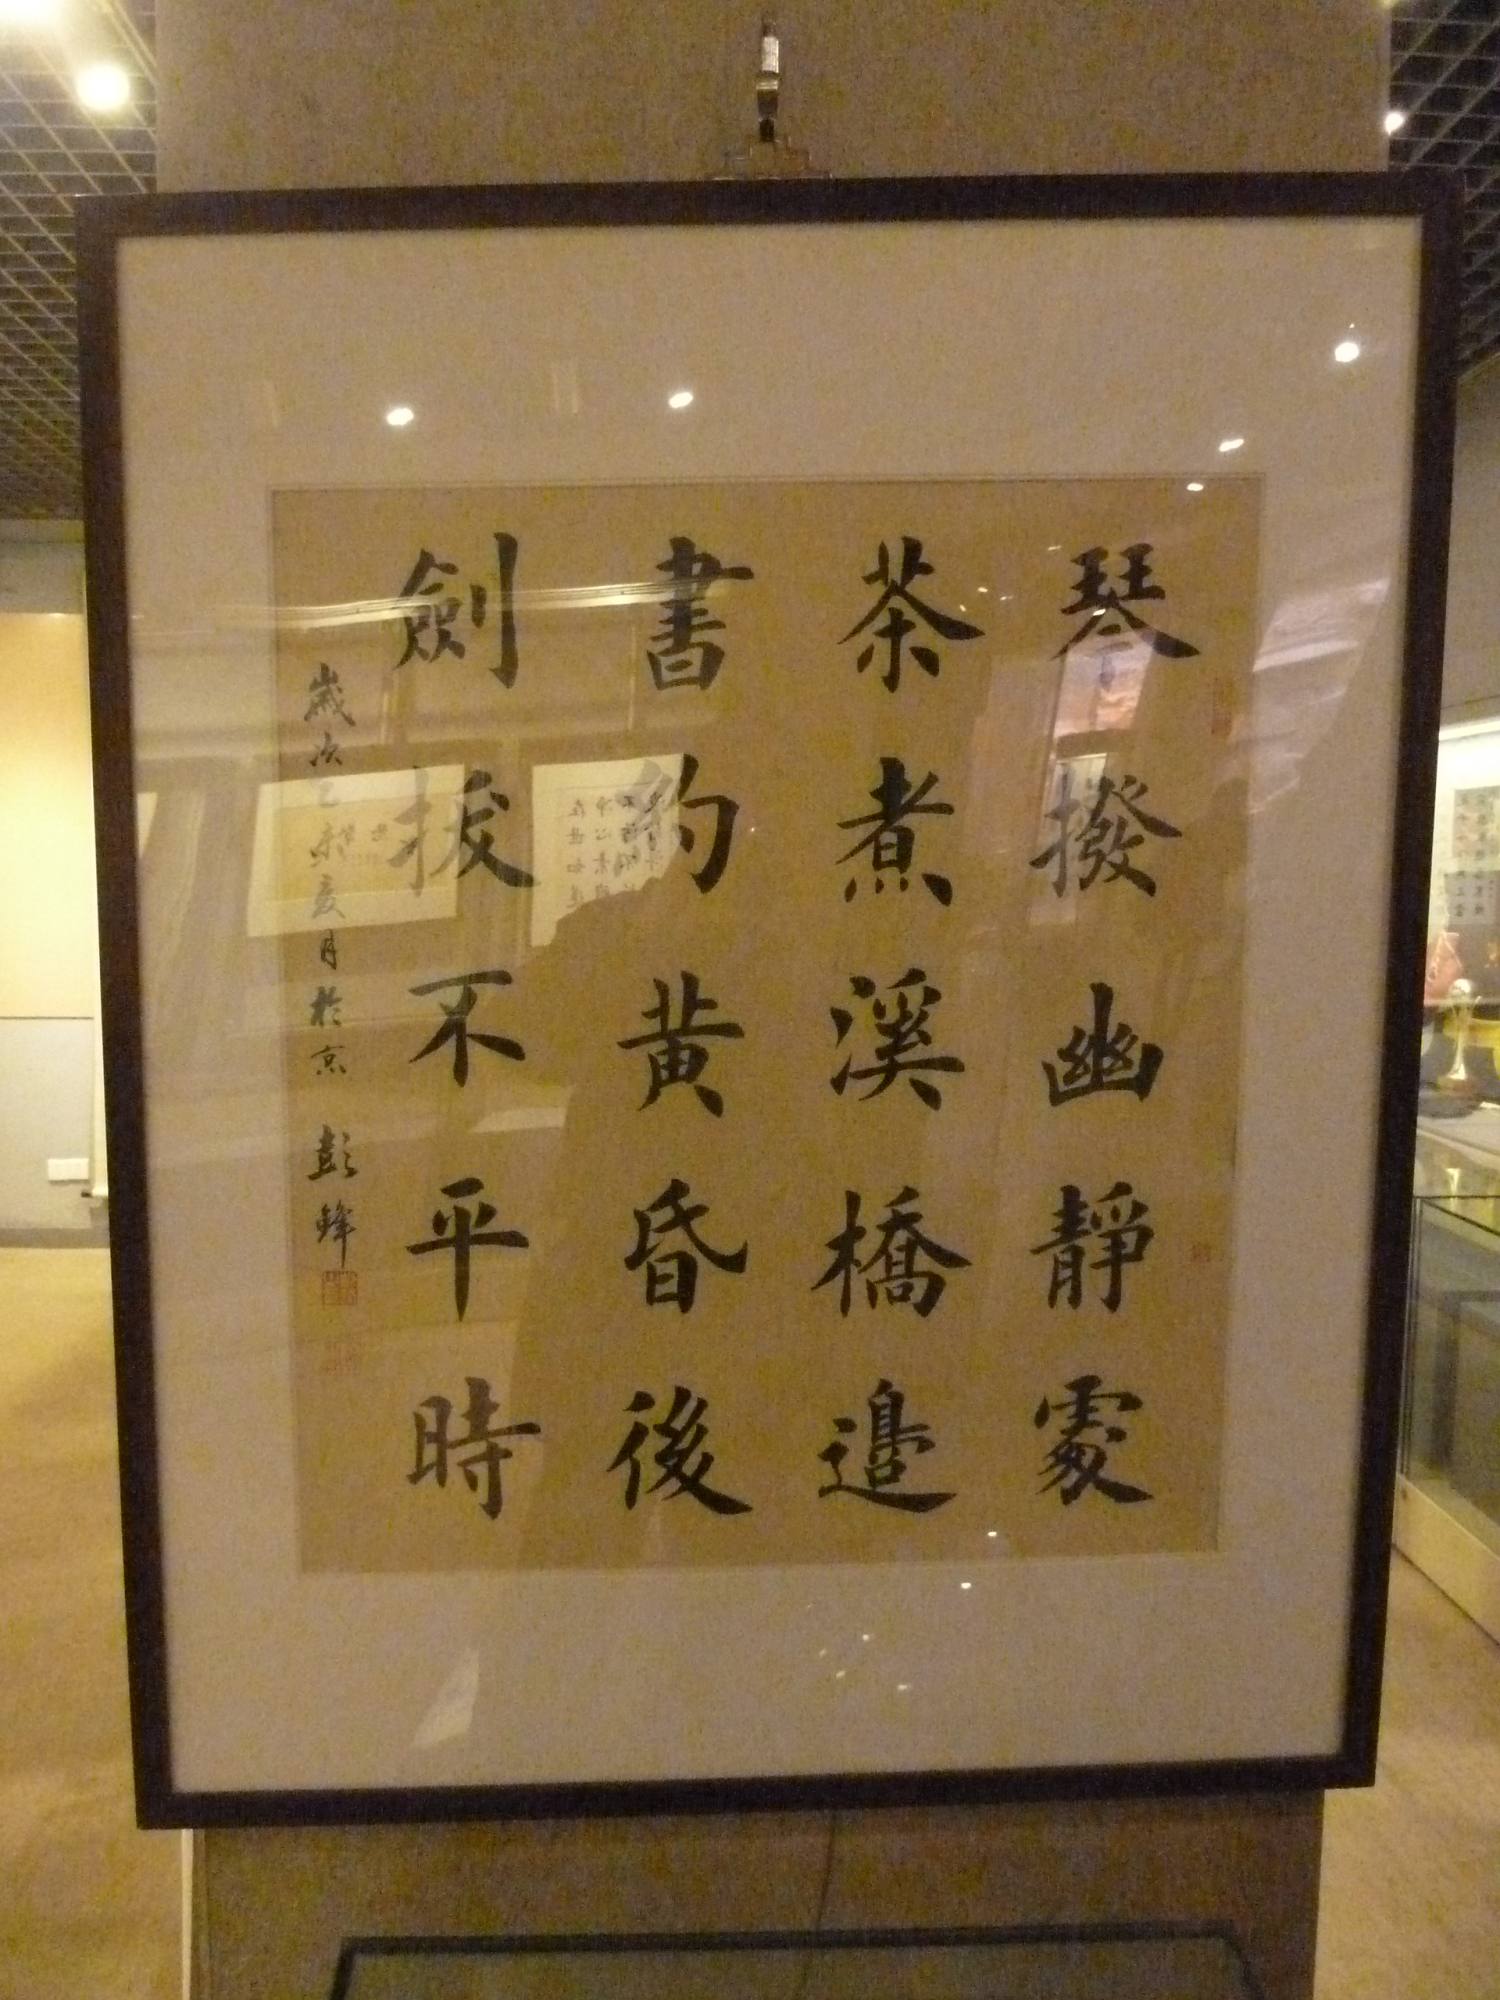 琴撥幽靜處
茶煮溪橋邊
書約黄昏後
劍拔不平時
歲次乙未夏月於京 彭鋒